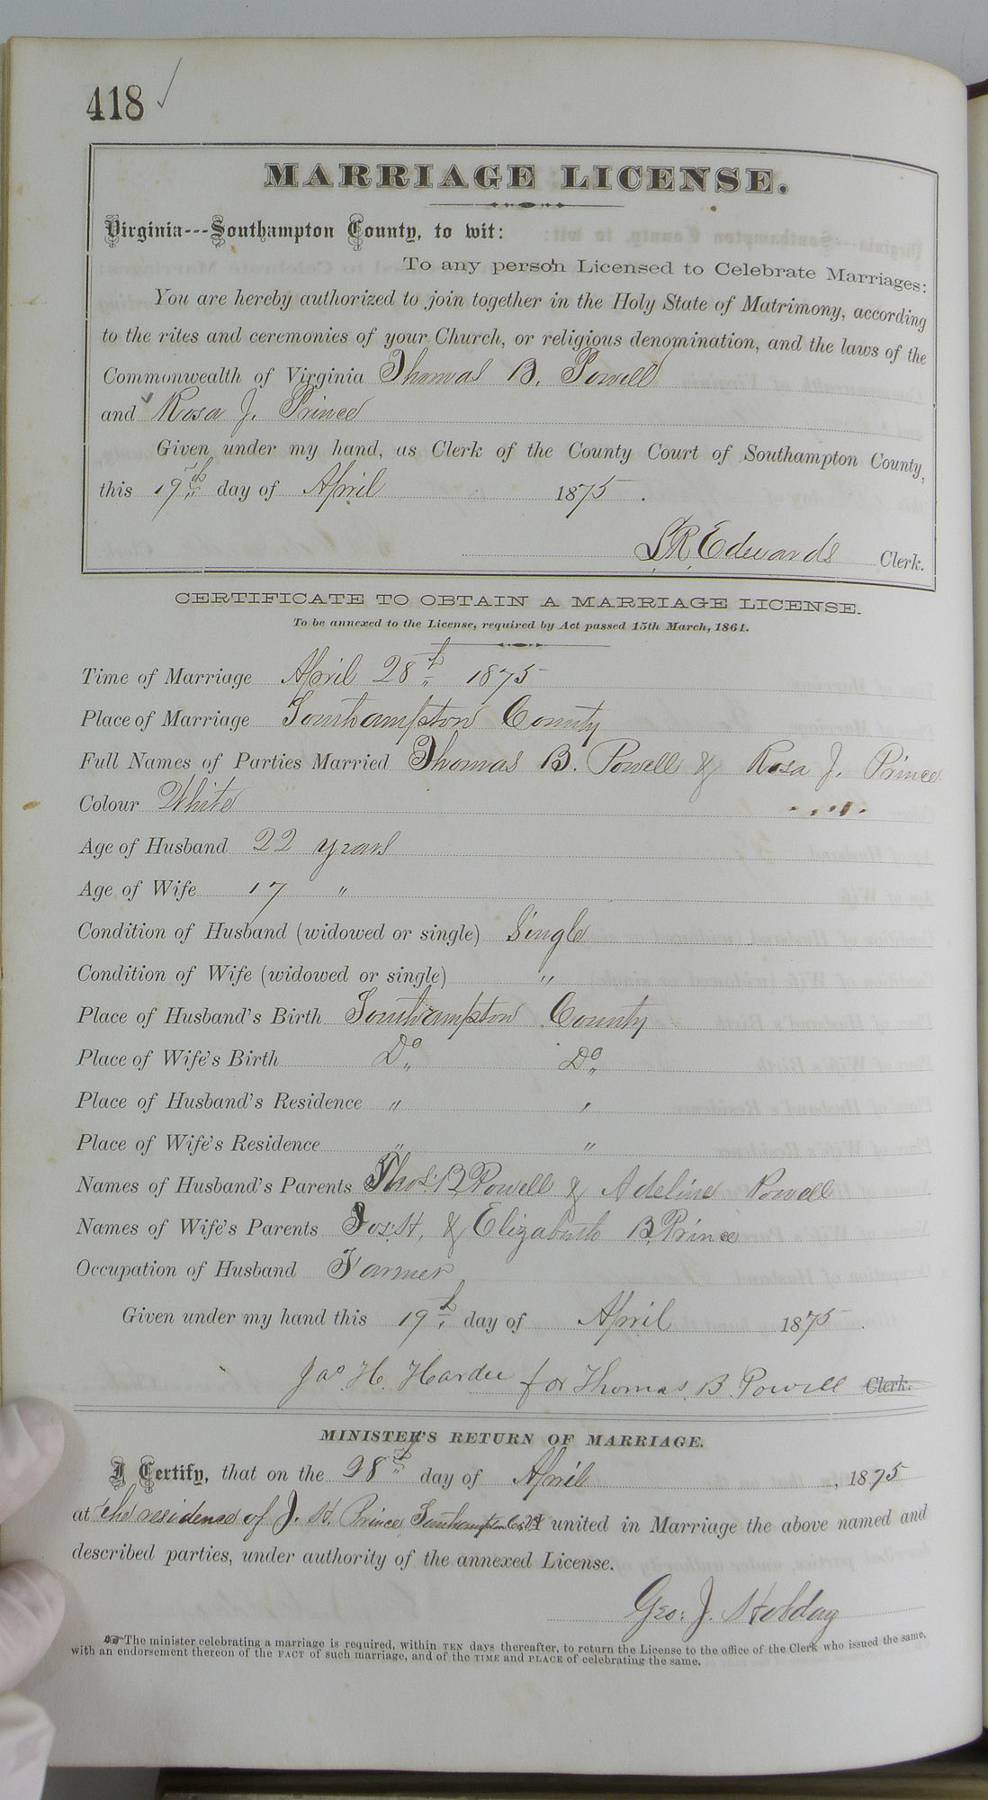 418 ✓
MARRIAGE LICENSE.
Virginia---Southampton County, to wit:
To any person Licensed to Celebrate Marriages:
You are hereby authorized to join together in the Holy State of Matrimony, according
to the rites and ceremonies of your Church, or religious denomination, and the laws of the
Commonwealth of Virginia Thomas B. Powell
and Rosa J. Prince
Given under my hand, as Clerk of the County Court of Southampton County,
this 19th day of April 1875.
L.R. Edwards Clerk.
CERTIFICATE TO OBTAIN A MARRIAGE LICENSE.
To be annexed to the License, required by Act passed 15th March, 1861.
Time of Marriage April 28th 1875
Place of Marriage Southampton County
Full Names of Parties Married Thomas B. Powell & Rosa J. Prince
Colour White
Age of Husband 22 years
Age of Wife 17 "
Condition of Husband (widowed or single) Single
Condition of Wife (widowed or single) "
Place of Husband's Birth Southampton County
Place of Wife's Birth Do Do
Place of Husband's Residence " "
Place of Wife's Residence " "
Names of Husband's Parents Thos. B. Powell & Adeline Powell
Names of Wife's Parents Jos. H. & Elizabeth B. Prince
Occupation of Husband Farmer
Given under my hand this 19th day of April 1875.
Jas. H. Hardee for Thomas B. Powell Clerk.
MINISTER'S RETURN OF MARRIAGE.
I Certify, that on the 28th day of April, 1875
at the residence of J. H. Prince, Southampton Co., Va I united in Marriage the above named and
described parties, under authority of the annexed License.
Geo: J. Hobday
The minister celebrating a marriage is required, within TEN days thereafter, to return the License to the office of the Clerk who issued the same,
with an endorsement thereon of the FACT of such marriage, and of the TIME and PLACE of celebrating the same.